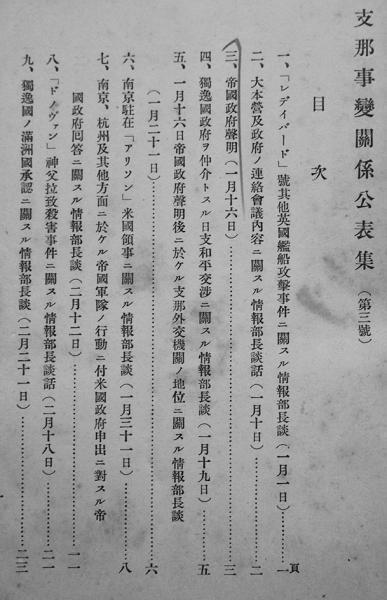 支那事變關係公表集（第三號）
目次
頁
一、「レデイバード」號其他英國艦船攻擊事件ニ關スル情報部長談（一月一日）……一
二、大本營及政府ノ連絡會議內容ニ關スル情報部長談話（一月十日）……二
三、帝國政府聲明（一月十六日）……三
四、獨逸國政府ヲ仲介トスル日支和平交涉ニ關スル情報部長談（一月十九日）……五
五、一月十六日帝國政府聲明後ニ於ケル支那外交機關ノ地位ニ關スル情報部長談
（一月二十一日）……六
六、南京駐在「アリソン」米國領事ニ關スル情報部長談（一月三十一日）……八
七、南京、杭州及其他方面ニ於ケル帝國軍隊ノ行動ニ付米國政府申出ニ對スル帝
國政府回答ニ關スル情報部長談（二月十二日）……一一
八、「ドノヴァン」神父拉致殺害事件ニ關スル情報部長談話（二月十八日）……二一
九、獨逸國ノ滿洲國承認ニ關スル情報部長談（二月二十一日）……二三